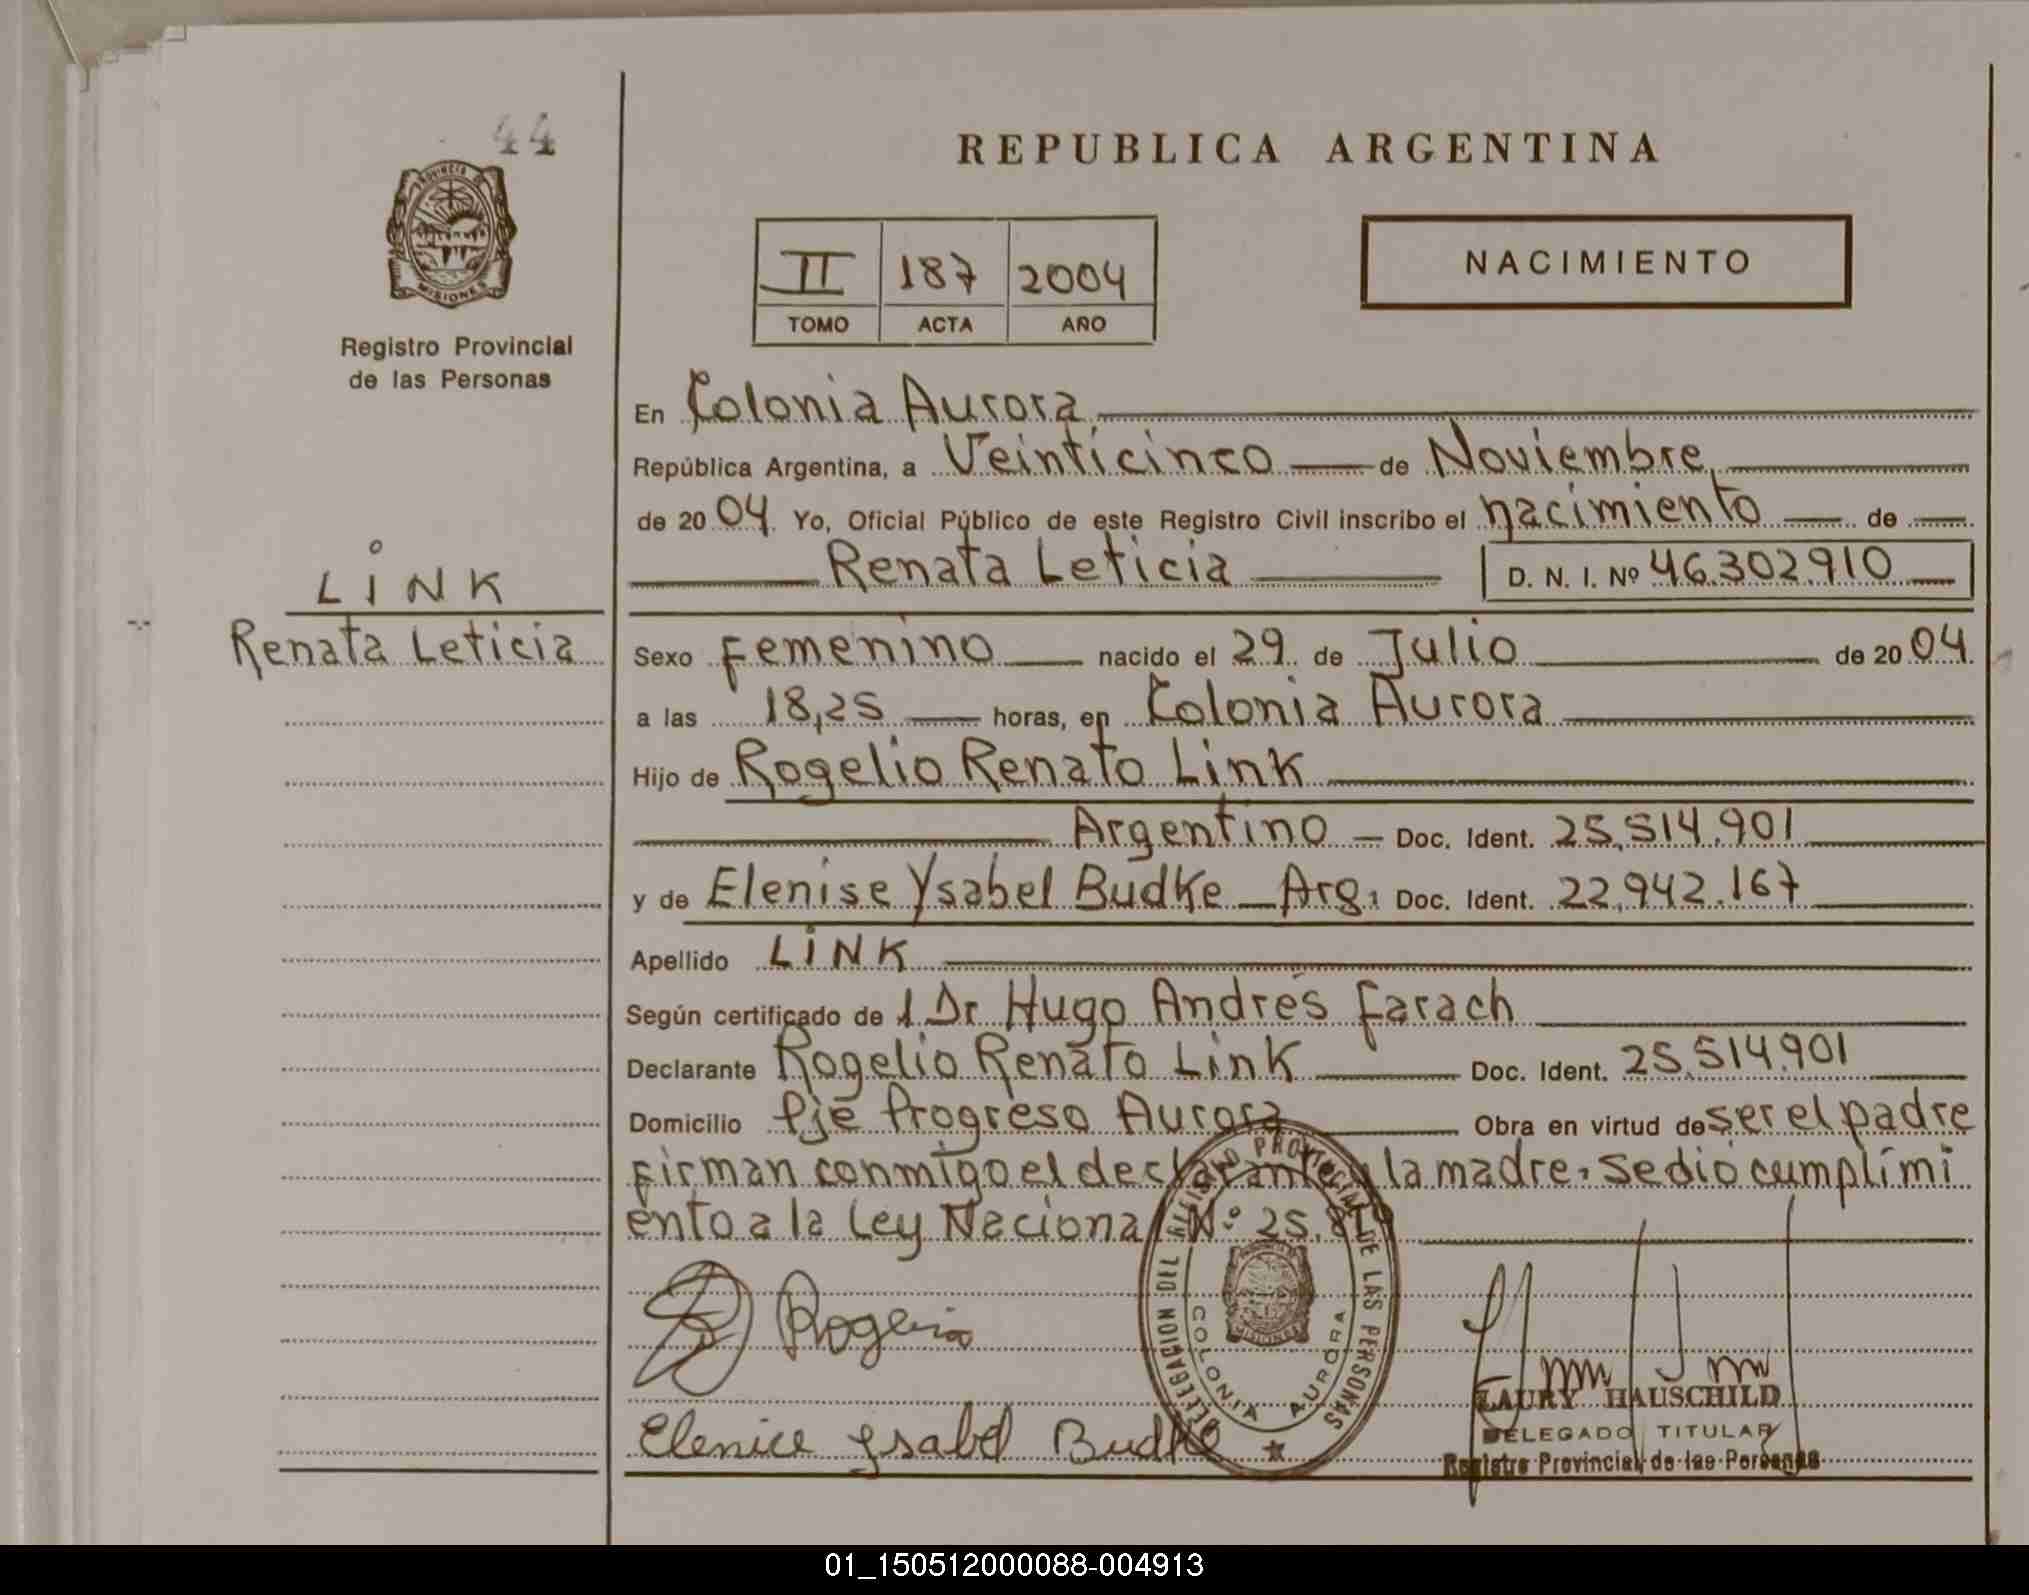 44
PROVINCIA DE
MISIONES
Registro Provincial
de las Personas
LINK
Renata Leticia
REPUBLICA ARGENTINA
II 187 2004
TOMO ACTA AÑO
NACIMIENTO
En Colonia Aurora
República Argentina, a Veinticinco de Noviembre
de 2004 Yo, Oficial Público de este Registro Civil inscribo el nacimiento de
Renata Leticia D. N. I. Nº 46.302.910
Sexo Femenino nacido el 29 de Julio de 2004
a las 18,25 horas, en Colonia Aurora
Hijo de Rogelio Renato Link
Argentino Doc. Ident. 25.514.901
y de Elenise Ysabel Budke Arg. Doc. Ident. 22.942.167
Apellido LINK
Según certificado de 1 Dr Hugo Andrés Farach
Declarante Rogelio Renato Link Doc. Ident. 25.514.901
Domicilio Pje Progreso Aurora Obra en virtud de ser el padre
firman conmigo el declarante y la madre, se dió cumplimi
ento a la Ley Nacional Nº 25.
Rogelio
Elenice Ysabel Budke
DELEGACION DEL REGISTRO PROVINCIAL DE LAS PERSONAS
COLONIA AURORA
MISIONES
LAURY HAUSCHILD
DELEGADO TITULAR
Registro Provincial de las Personas
01_150512000088-004913